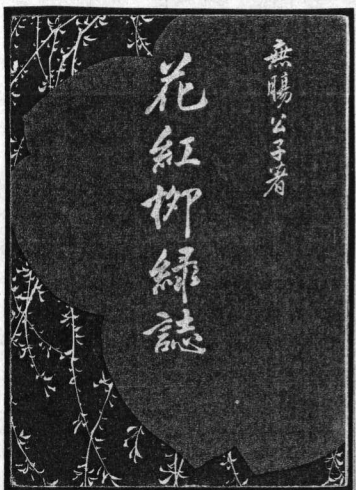 無腸公子著
花紅柳緑誌